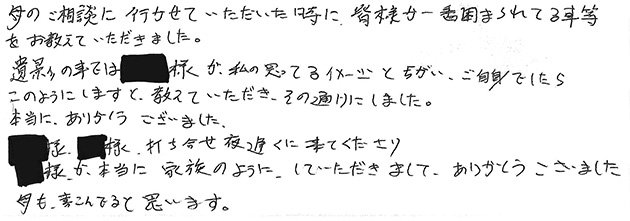 母のご相談に行かせていただいた時に、皆様が一番困まられてる事等
をお教えていただきました。
遺影の事では 様が、私の思ってるイメージとちがい、ご自身でしたら
このようにしますと、教えていただき、その通りにしました。
本当に、ありがとうございました、
様、 様、打ち合せ夜遅くに来てくださり
様が、本当に家族のように、していただきまして、ありがとうございました
母も、喜こんでると思います。